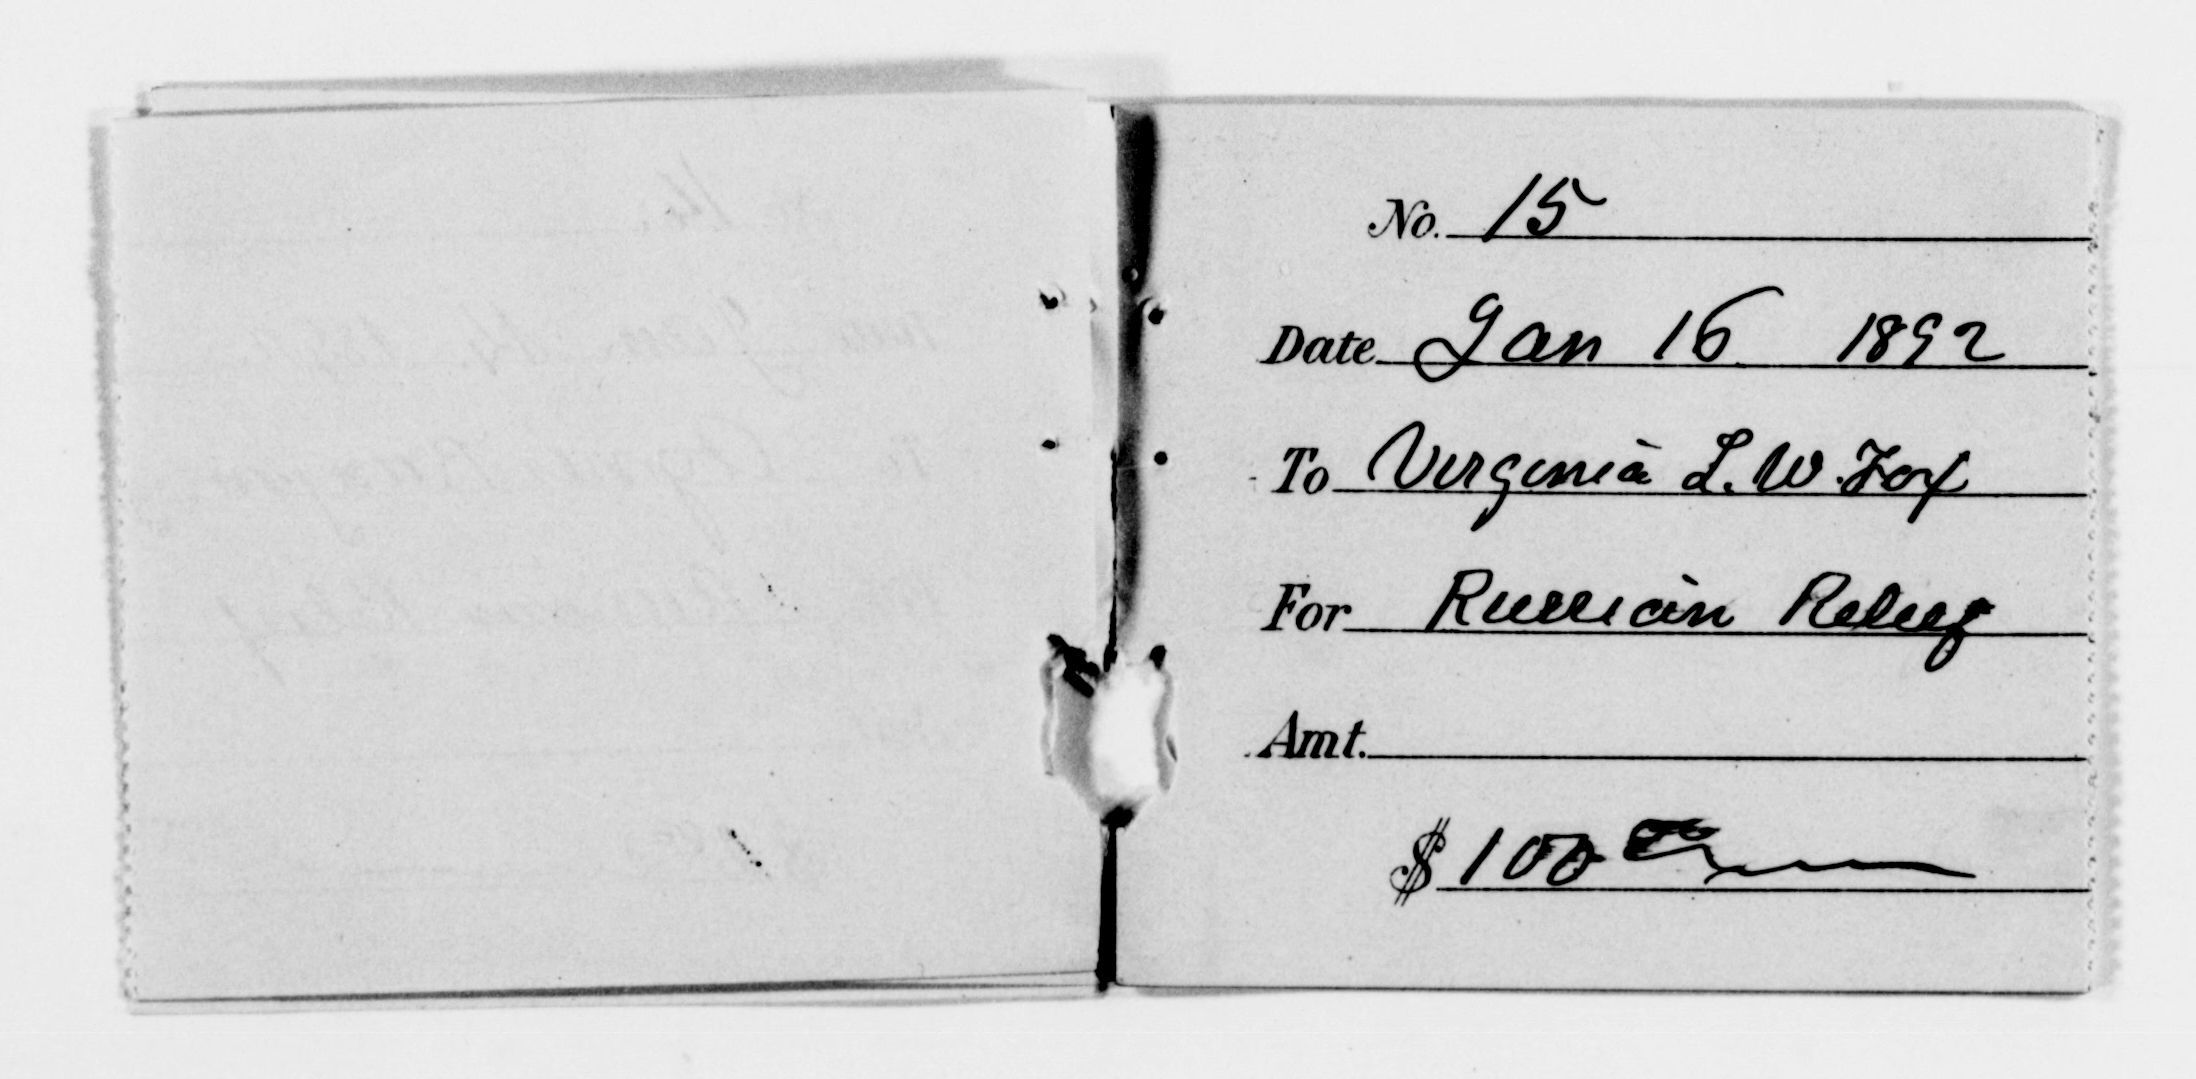 No. 15
Date Jan 16 1892
To Virginia L. W. Fox
For Russian Relief
Amt.
$ 100 00